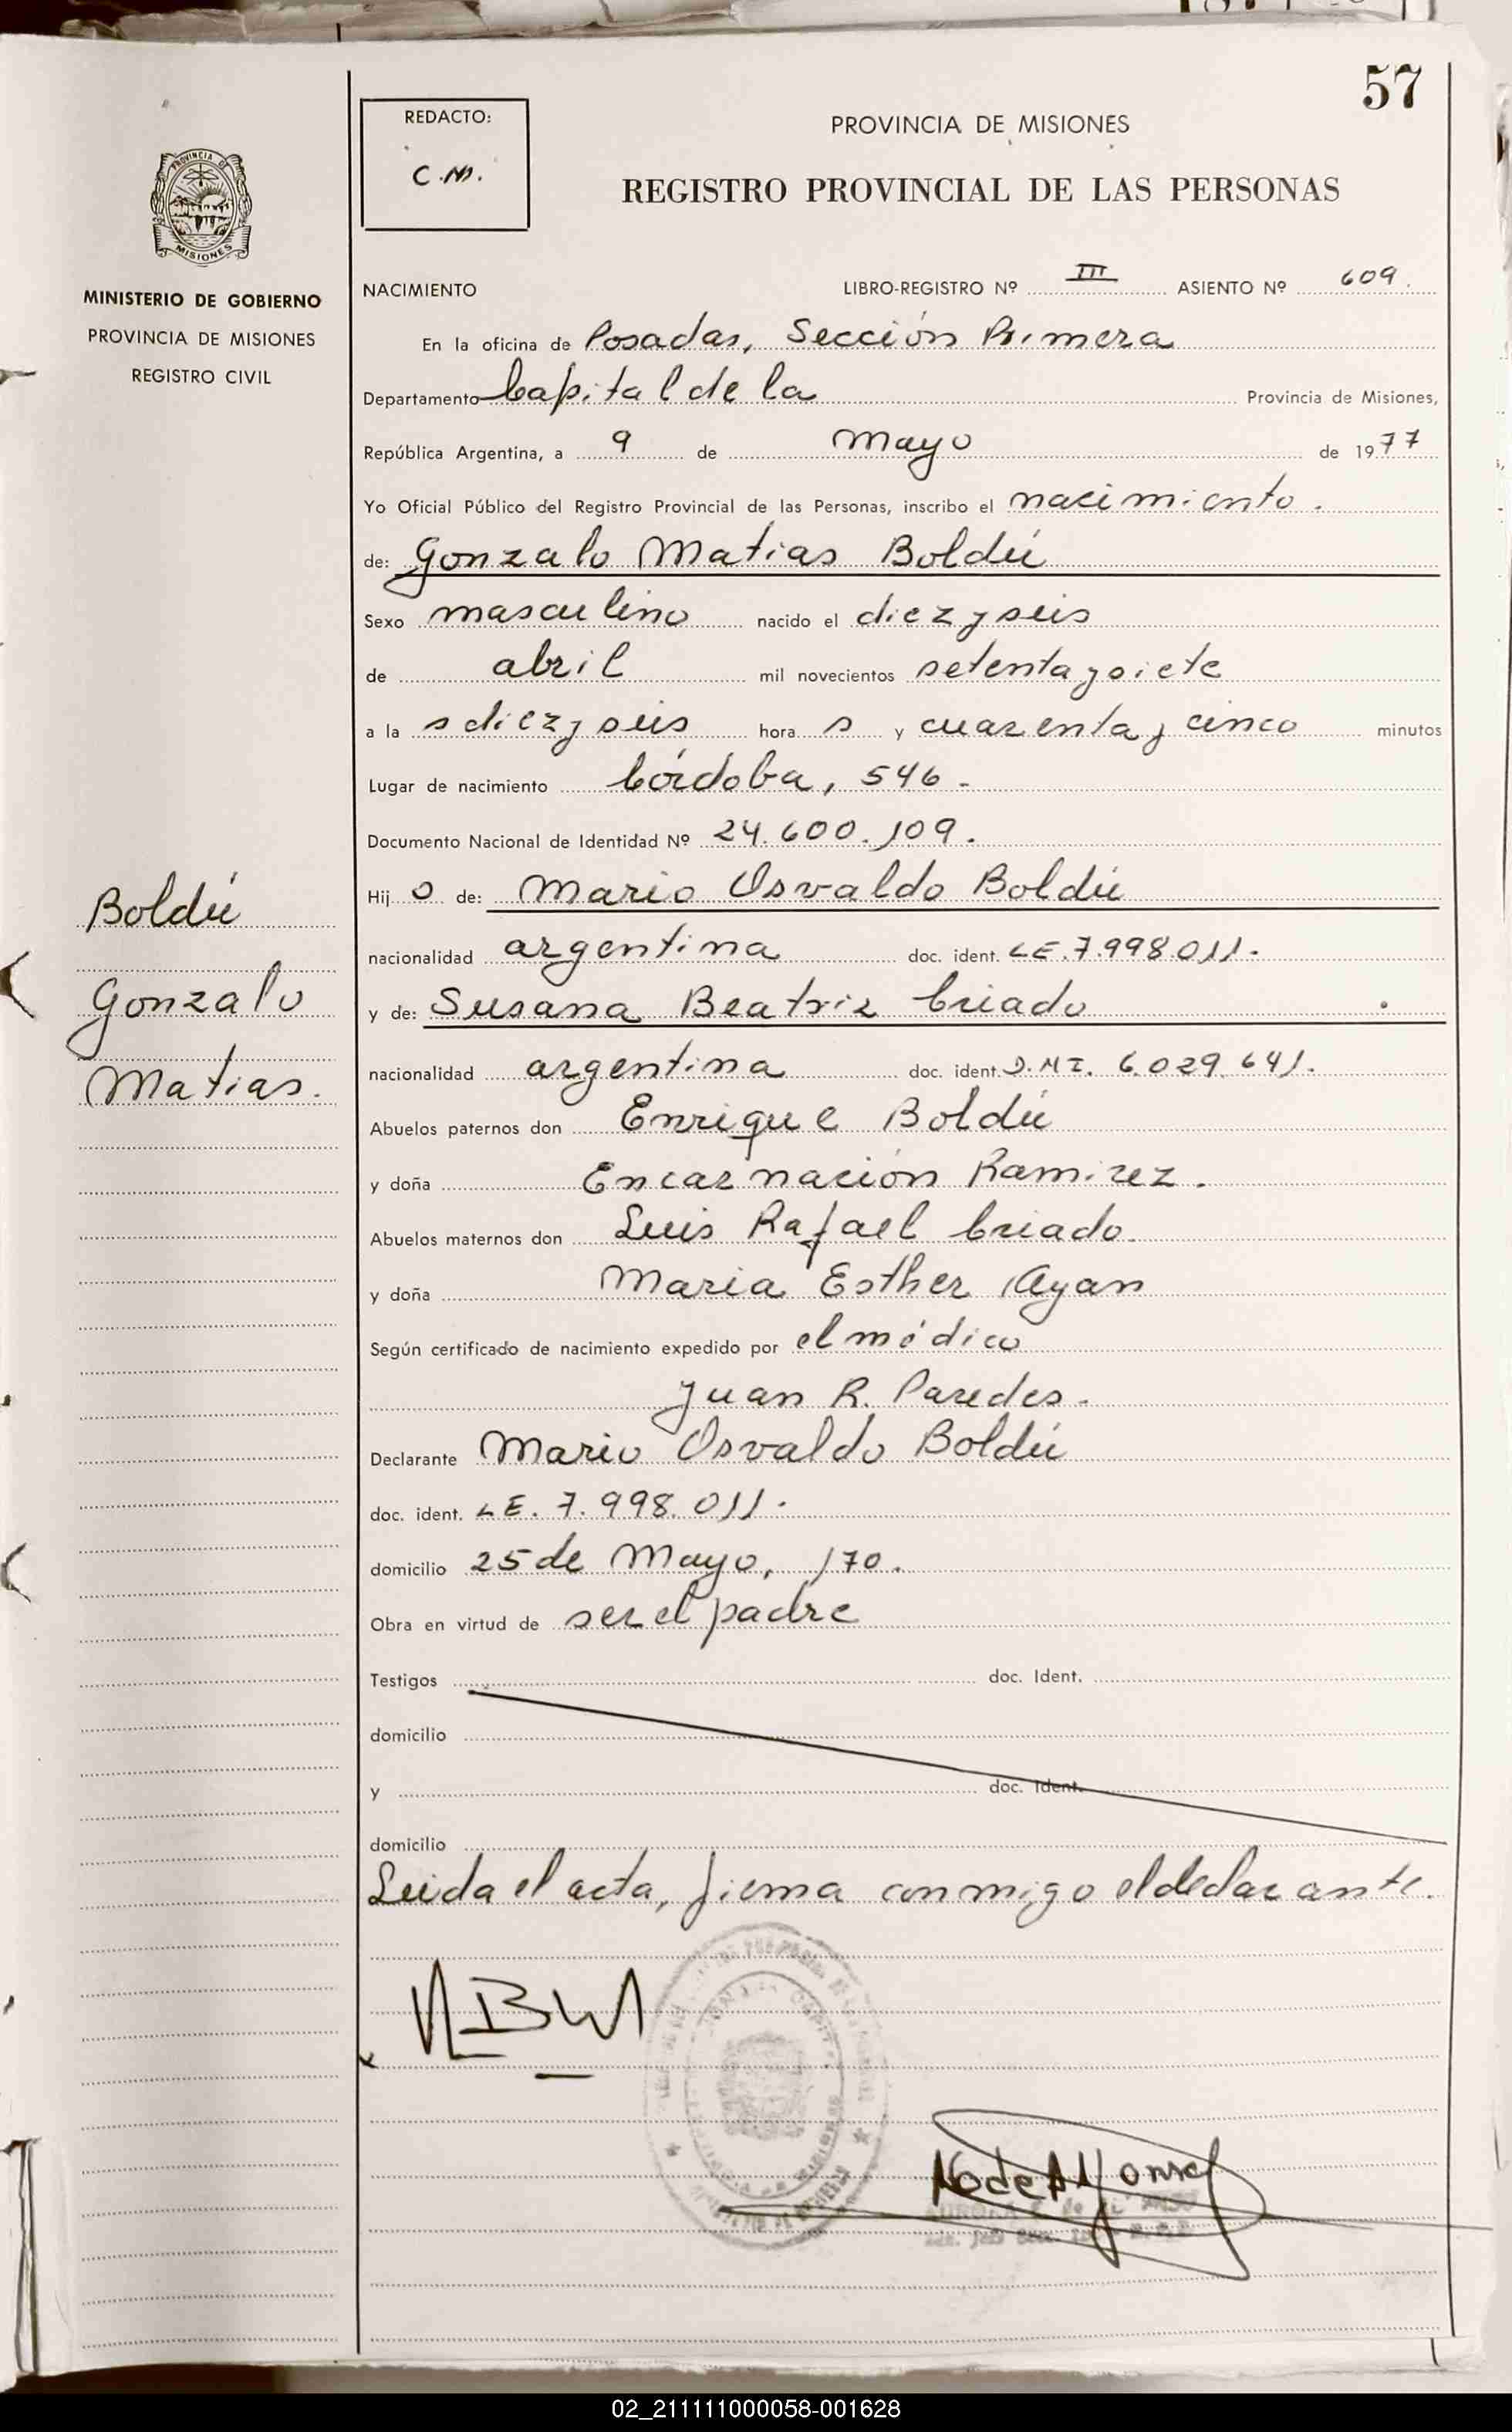 57
REDACTO:
C.M.
PROVINCIA DE MISIONES
REGISTRO PROVINCIAL DE LAS PERSONAS
PROVINCIA DE
MISIONES
MINISTERIO DE GOBIERNO
PROVINCIA DE MISIONES
REGISTRO CIVIL
NACIMIENTO LIBRO-REGISTRO Nº III ASIENTO Nº 609.
En la oficina de Posadas, Sección Primera
Departamento Capital de la Provincia de Misiones,
República Argentina, a 9 de mayo de 1977
Yo Oficial Público del Registro Provincial de las Personas, inscribo el nacimiento.
de: Gonzalo Matias Boldú
Sexo masculino nacido el diez y seis
de abril mil novecientos setenta y siete
a la s diez y seis hora s y cuarenta y cinco minutos
Lugar de nacimiento Córdoba, 546.
Documento Nacional de Identidad Nº 24.600.109.
Hij o de: Mario Osvaldo Boldú
nacionalidad argentina doc. ident. LE.7.998.011.
y de: Susana Beatriz Criado
nacionalidad argentina doc. ident. D.N.I. 6.029.641.
Abuelos paternos don Enrique Boldú
y doña Encarnación Ramirez.
Abuelos maternos don Luis Rafael Criado.
y doña Maria Esther Ayan
Según certificado de nacimiento expedido por el médico
Juan R. Paredes.
Declarante Mario Osvaldo Boldú
doc. ident. LE. 7.998.011.
domicilio 25 de Mayo, 170.
Obra en virtud de ser el padre
Testigos doc. Ident.
domicilio
y doc. Ident.
domicilio
Leida el acta, firma conmigo el declarante.
Boldú
Gonzalo
Matias.
02_211111000058-001628